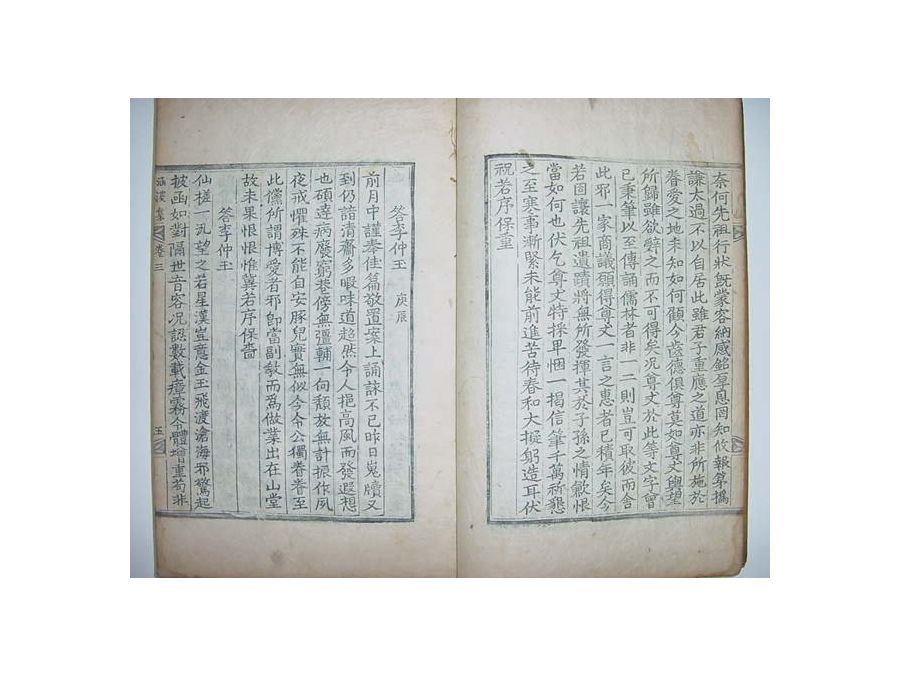 奈何先祖行狀旣蒙容納感銘厚恩罔知攸報第撝
謙太過不以自居此雖君子重應之道亦非所施於
眷愛之地未知如何顧今齒德俱尊莫如尊丈輿望
所歸雖欲辭之而不可得矣况尊丈於此等文字曾
已秉筆以至傳誦儒林者非一二則豈可取彼而舍
此耶一家商議願得尊丈一言之惠者已積年矣今
若固讓先祖遺蹟將無所發揮其於子孫之情歉恨
當如何也伏乞尊丈特採卑悃一揭信筆千萬祈懇
之至寒事漸緊未能前進苦待春和大擬躬造耳伏
祝若序保重
答李仲玉 庚辰
前月中謹奉佳篇敬置案上誦誄不已昨日嵬牘又
到仍諳淸齋多暇味道超然令人挹高風而發遐想
也碩逵病廢窮巷傍無彊輔一向頹放無計振作夙
夜戒懼殊不能自安豚兒實無似今令公獨眷眷至
此儻所謂博愛者邪卽當副敎而爲做業出在山堂
故未果恨恨惟冀若序保嗇
答李仲玉
仙槎一汎望之若星漢豈意金玉飛渡滄海邪驚起
披函如對隔世音容况認數載瘴霧令體增重苟非
卷三
五